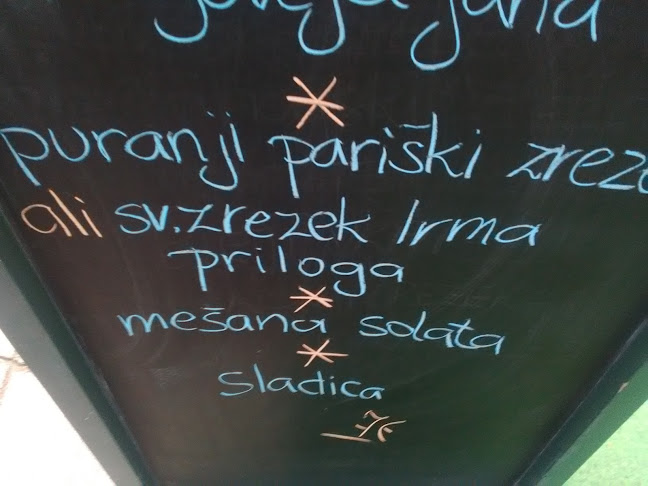 puranji pariški zreze
ali sv.zrezek Irma
priloga
mešana solata
sladica
7€